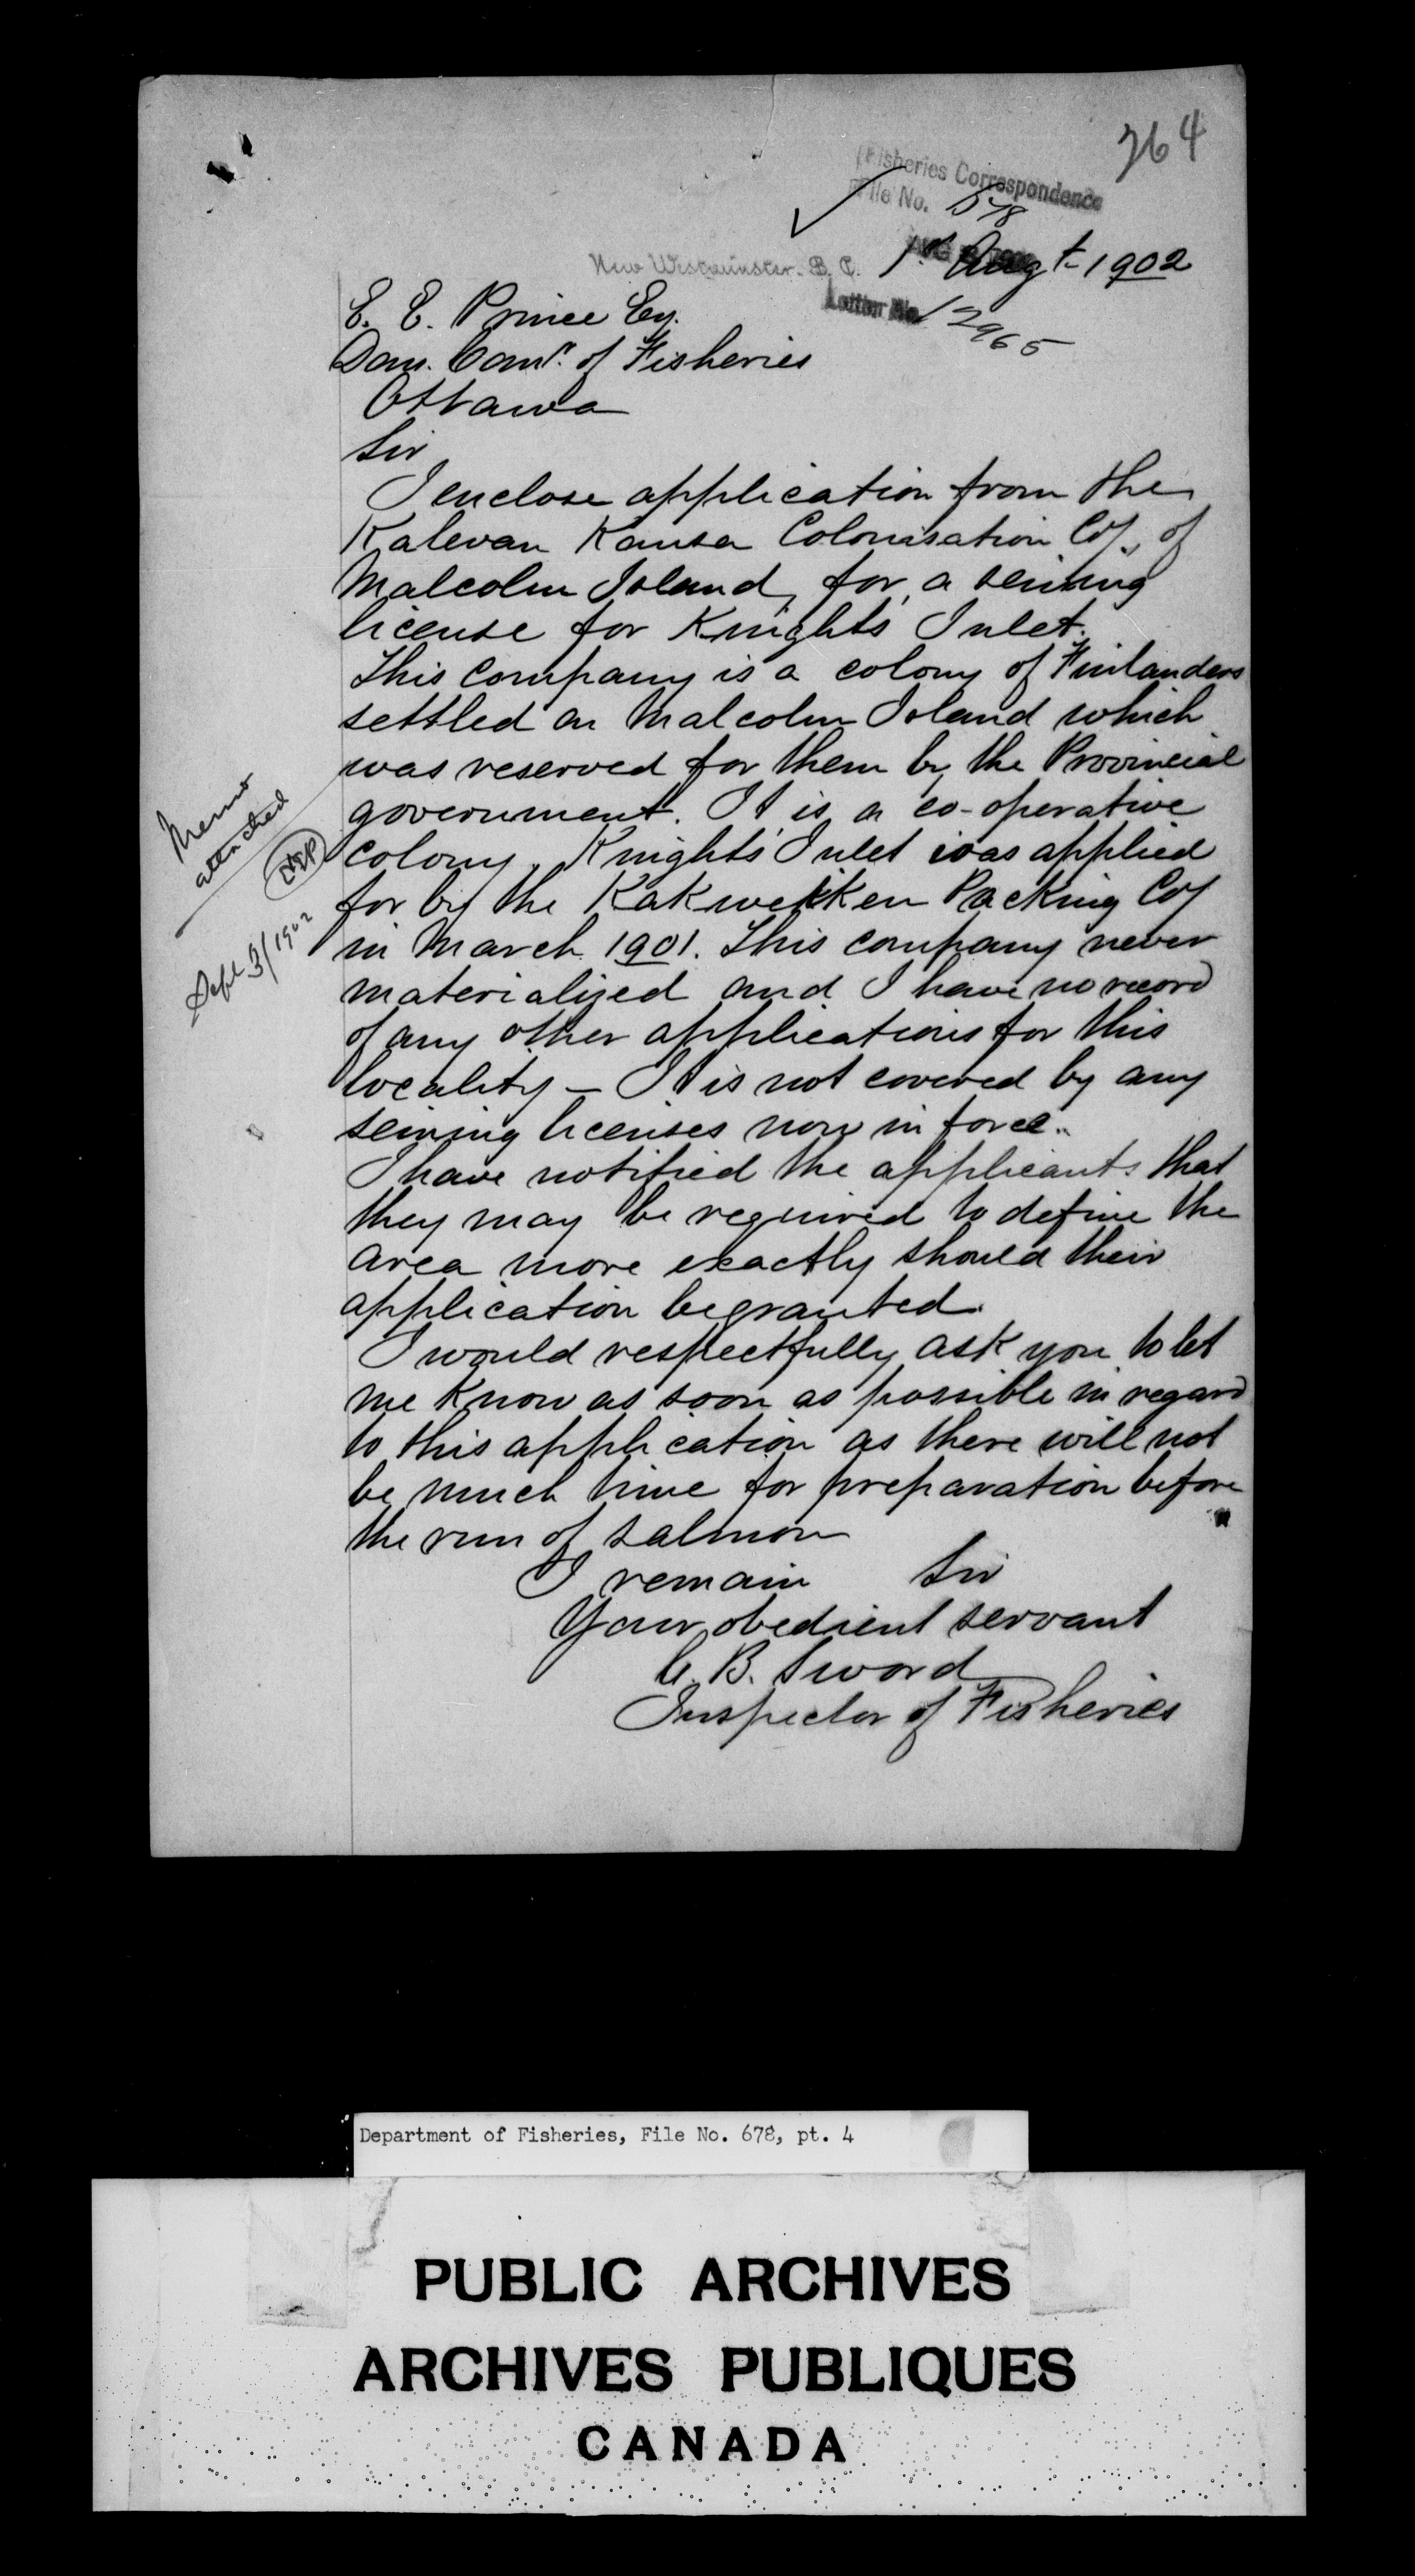 264
Fisheries Correspondence
File No. 678
New Westminster. B. C. 1st Augt 1902
Letter No. 12965
E. E. Prince Esq.
Dom. Comr. of Fisheries
Ottawa
Sir
I enclose application from the
Kalevan Kansa Colonisation Coy., of
Malcolm Island, for a seining
license for Knights' Inlet.
This company is a colony of Finlanders
settled on Malcolm Island which
was reserved for them by the Provincial
government. It is a co-operative
colony. Knights' Inlet was applied
for by the Kakweikken Packing Coy
in March 1901. This company never
materialized and I have no record
of any other applications for this
locality – It is not covered by any
seining licenses now in force..
I have notified the applicants that
they may be required to define the
area more exactly should their
application be granted.
I would respectfully ask you to let
me know as soon as possible in regard
to this application as there will not
be much time for preparation before
the run of salmon
I remain Sir
Your obedient servant
C. B. Sword
Inspector of Fisheries
Memo
attached
EEP
Sept 3/1902
Department of Fisheries, File No. 678, pt. 4
PUBLIC ARCHIVES
ARCHIVES PUBLIQUES
CANADA